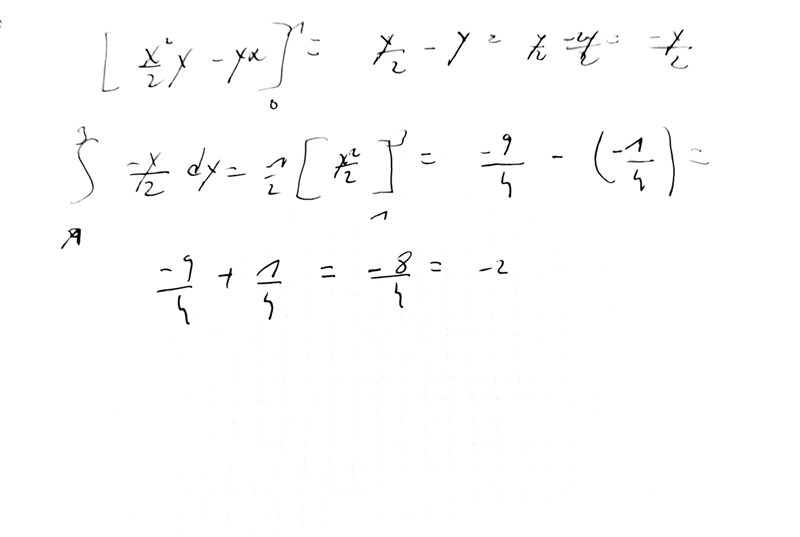 [ x²/2 y - yx ]₀¹ = y/2 - y = y/2 - 2y/2 = -y/2
∫₁³ -y/2 dy = -1/2 [ y²/2 ]₁³ = -9/4 - (-1/4) =
-9/4 + 1/4 = -8/4 = -2